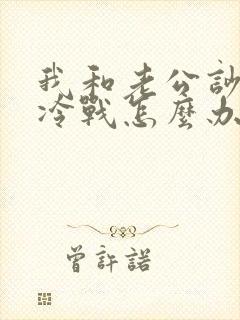 我和老公訟
冷戰怎麼办
曾許諾